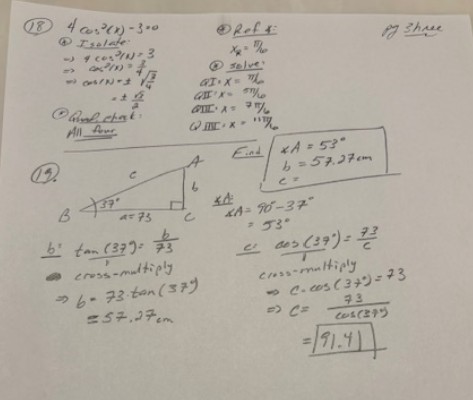 pg three
(18) 4 cos²(x) - 3 = 0
Isolate:
⇒ 4 cos²(x) = 3
⇒ cos²(x) = 3/4
⇒ cos(x) = ± √(3/4)
= ± √3/2
Quad check:
All four
Ref ∡:
x_R = π/6
Solve:
QI: x = π/6
QII: x = 5π/6
QIII: x = 7π/6
QIIII: x = 11π/6
(19.)
A
c
b
B
37°
a=73
C
Find
∡A = 53°
b = 57.27cm
c =
∡A:
∡A = 90° - 37°
= 53°
b: tan(37°) = b/73
cross-multiply
⇒ b = 73·tan(37°)
= 57.27cm
c: cos(37°) = 73/c
cross-multiply
⇒ c·cos(37°) = 73
⇒ c = 73/cos(37°)
= 91.41